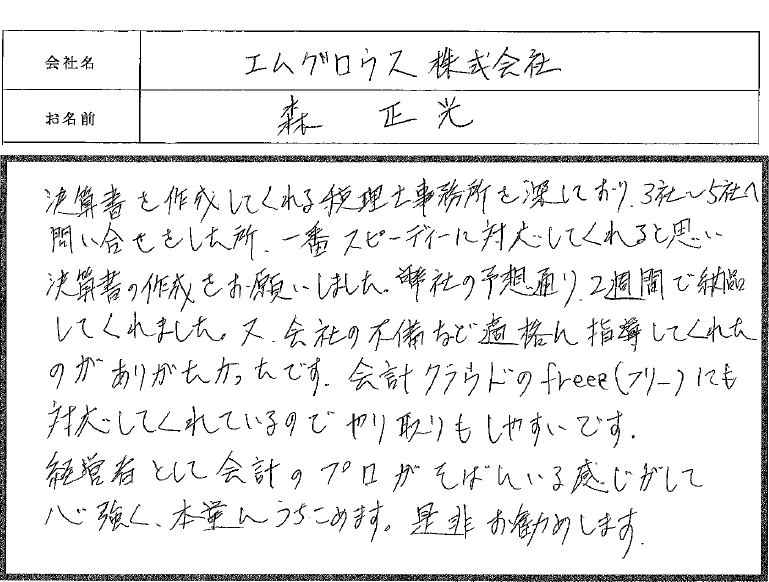 会社名 エムグロウス 株式会社
お名前 森 正光
決算書を作成してくれる税理士事務所を探しており、3社〜5社へ
問い合せをした所、一番スピーディーに対応してくれると思い
決算書の作成をお願いしました。弊社の予想通り、2週間で納品
してくれました。又、会社の不備など適格に指導してくれた
のがありがたかったです。会計クラウドのfreee(フリー)にも
対応してくれているのでやり取りもしやすいです。
経営者として会計のプロがそばにいる感じがして
心強く、本業にうちこめます。是非お勧めします。